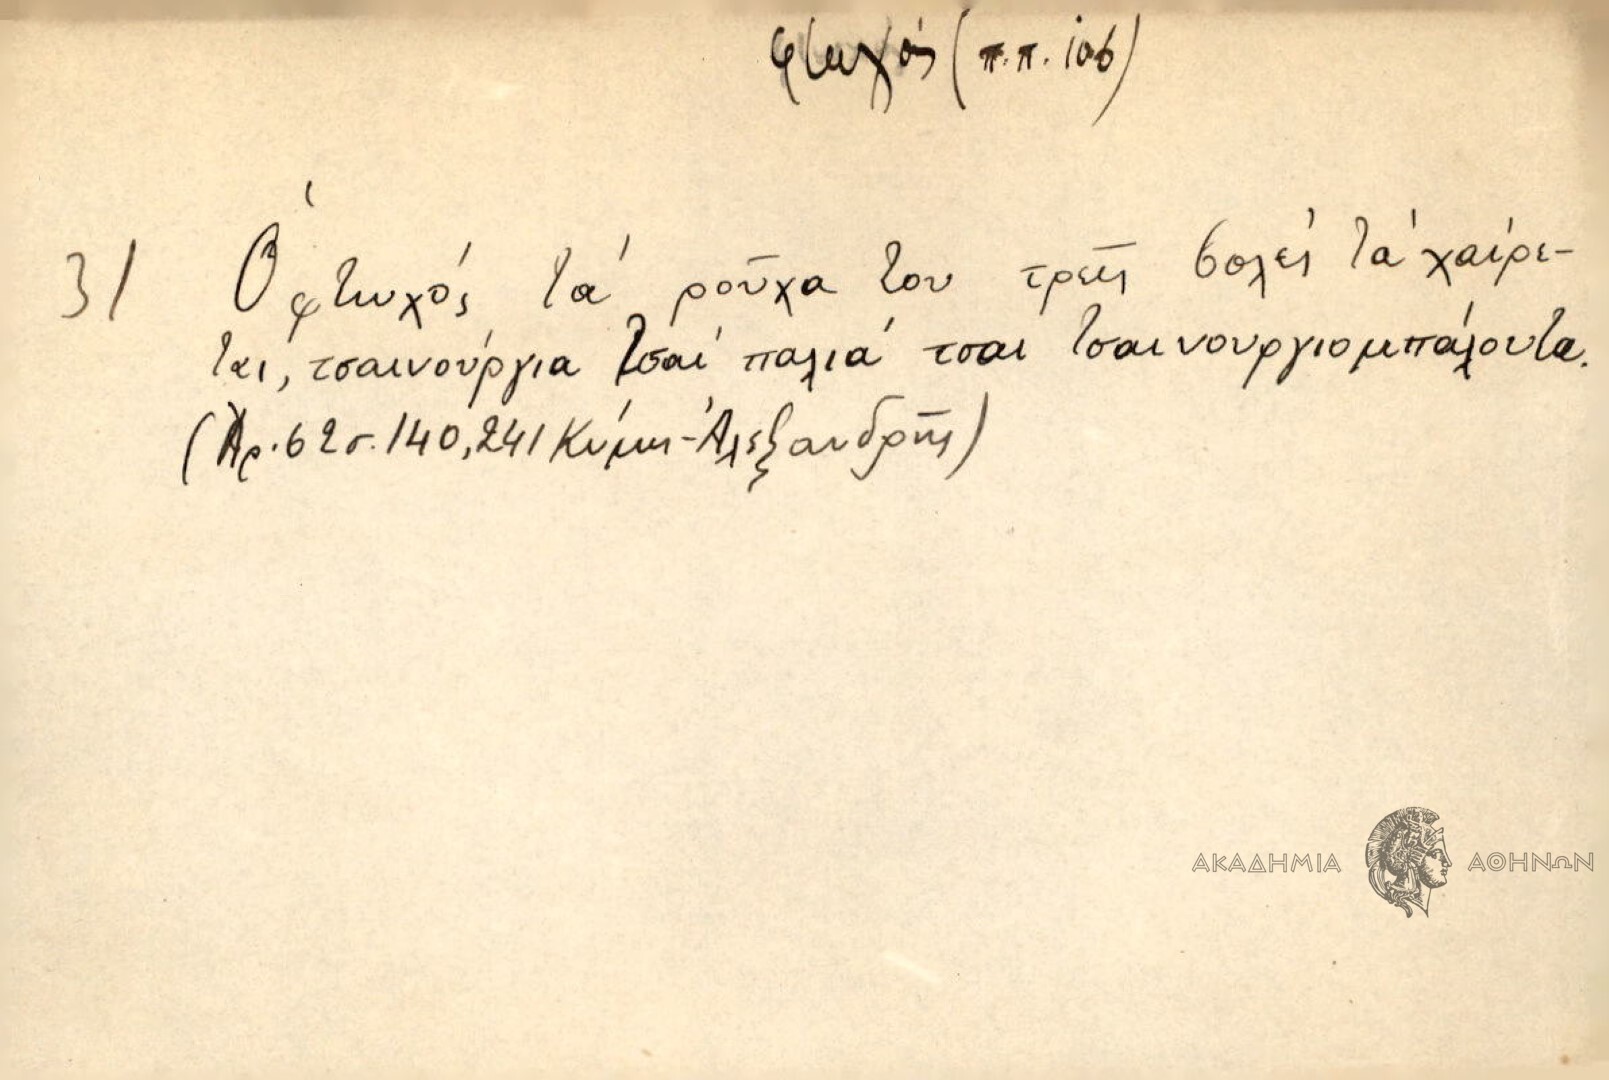 φτωχός (π.π. 106)
31 Ὁ φτωχός τά ροῦχα του τρεῖς βολές τά χαίρε-
ται, τσαινούργια τσαί παλιά τσαι τσαινουργιομπάλουτα.
(Ἀρ. 62 σ. 140, 241 Κύμης - Ἀλεξανδρῆς)
ΑΚΑΔΗΜΙΑ ΑΘΗΝΩΝ